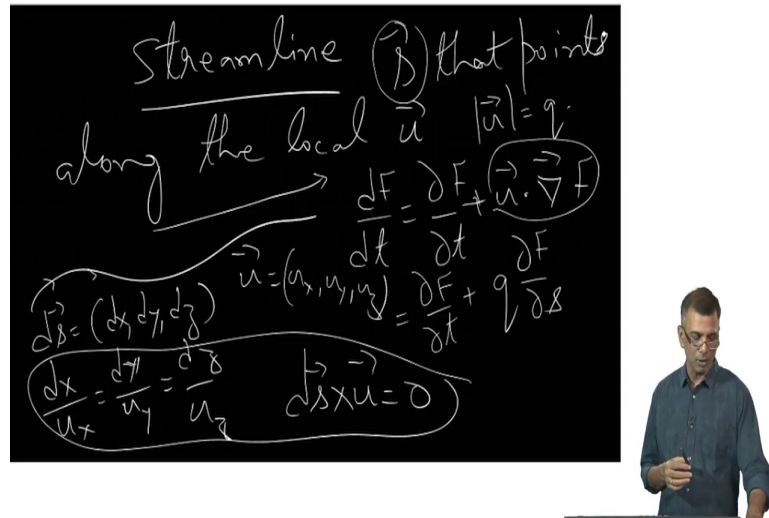 streamline s⃗ that points
along the local u⃗ |u⃗| = q.
dF/dt = ∂F/∂t + u⃗ · ∇⃗ F
u⃗ = (uₓ, u_y, u_z) = ∂F/∂t + q ∂F/∂s
d⃗s = (dx, dy, dz)
dx/uₓ = dy/u_y = dz/u_z d⃗s × u⃗ = 0